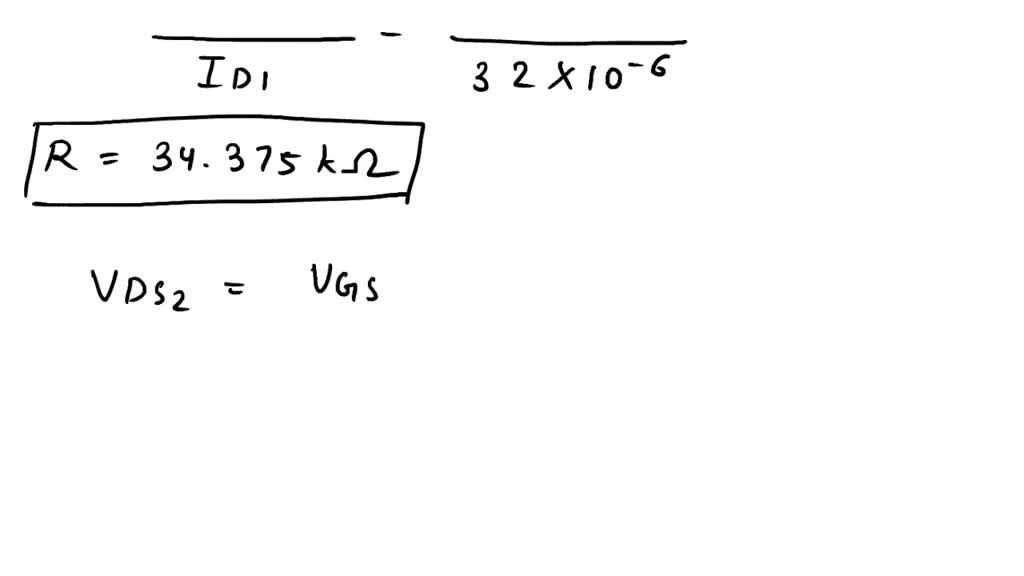 I_D1 - 32 × 10^-6
R = 34.375 kΩ
V_DS2 = V_GS